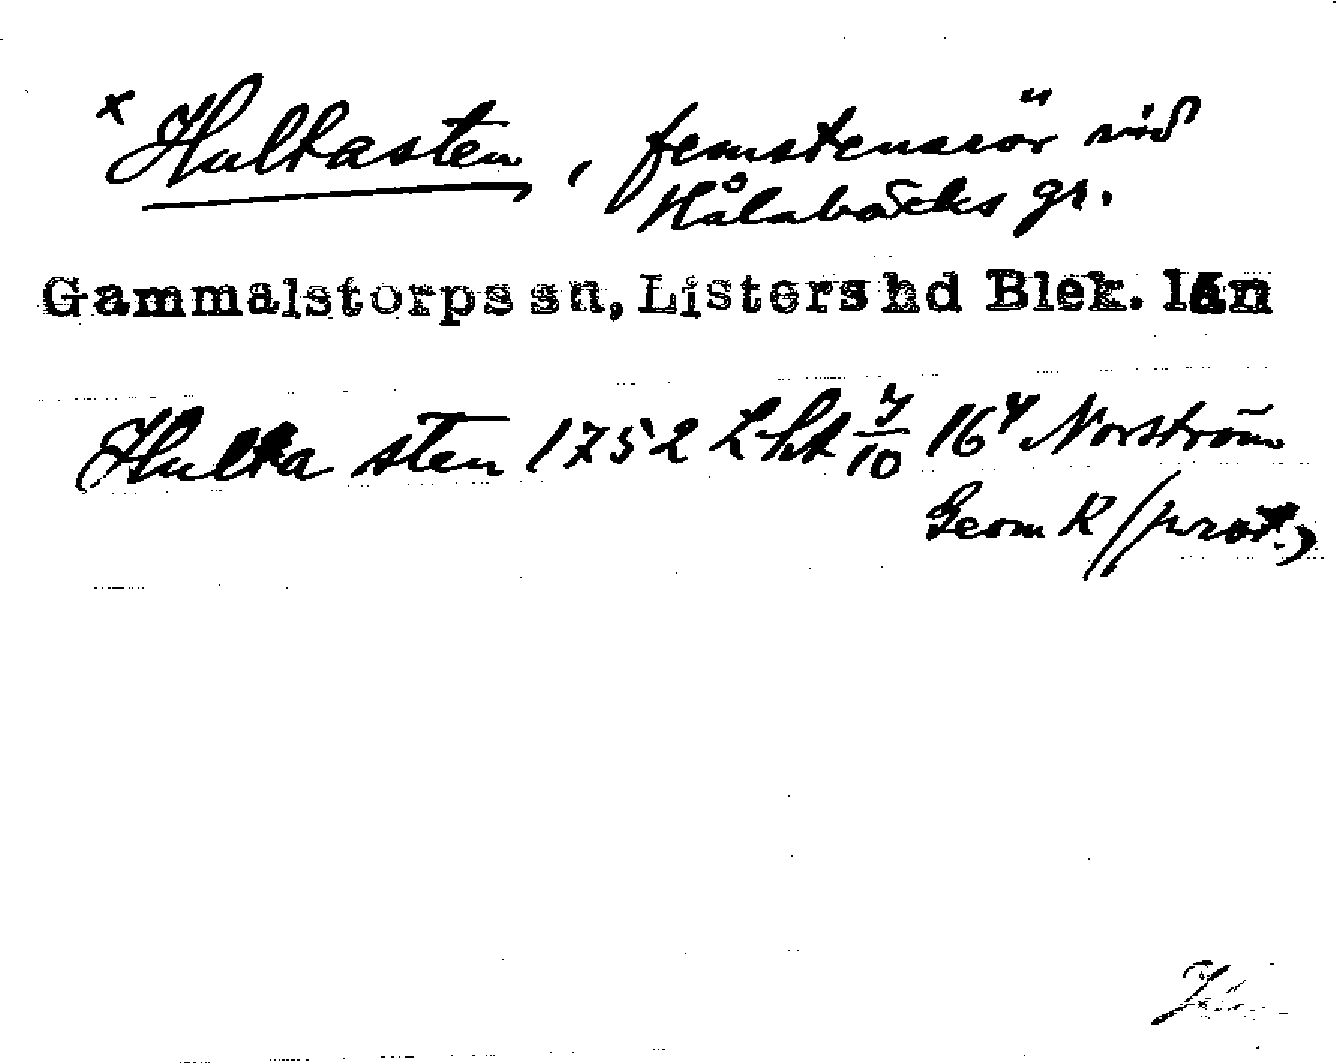 x Hultasten, femstensrör vid
Hålabäcks gr.
Gammalstorps sn, Listers hd Blek. län
Hulta sten 1752 Lht 7/10 16 4 Norström
Geom R (prot.)